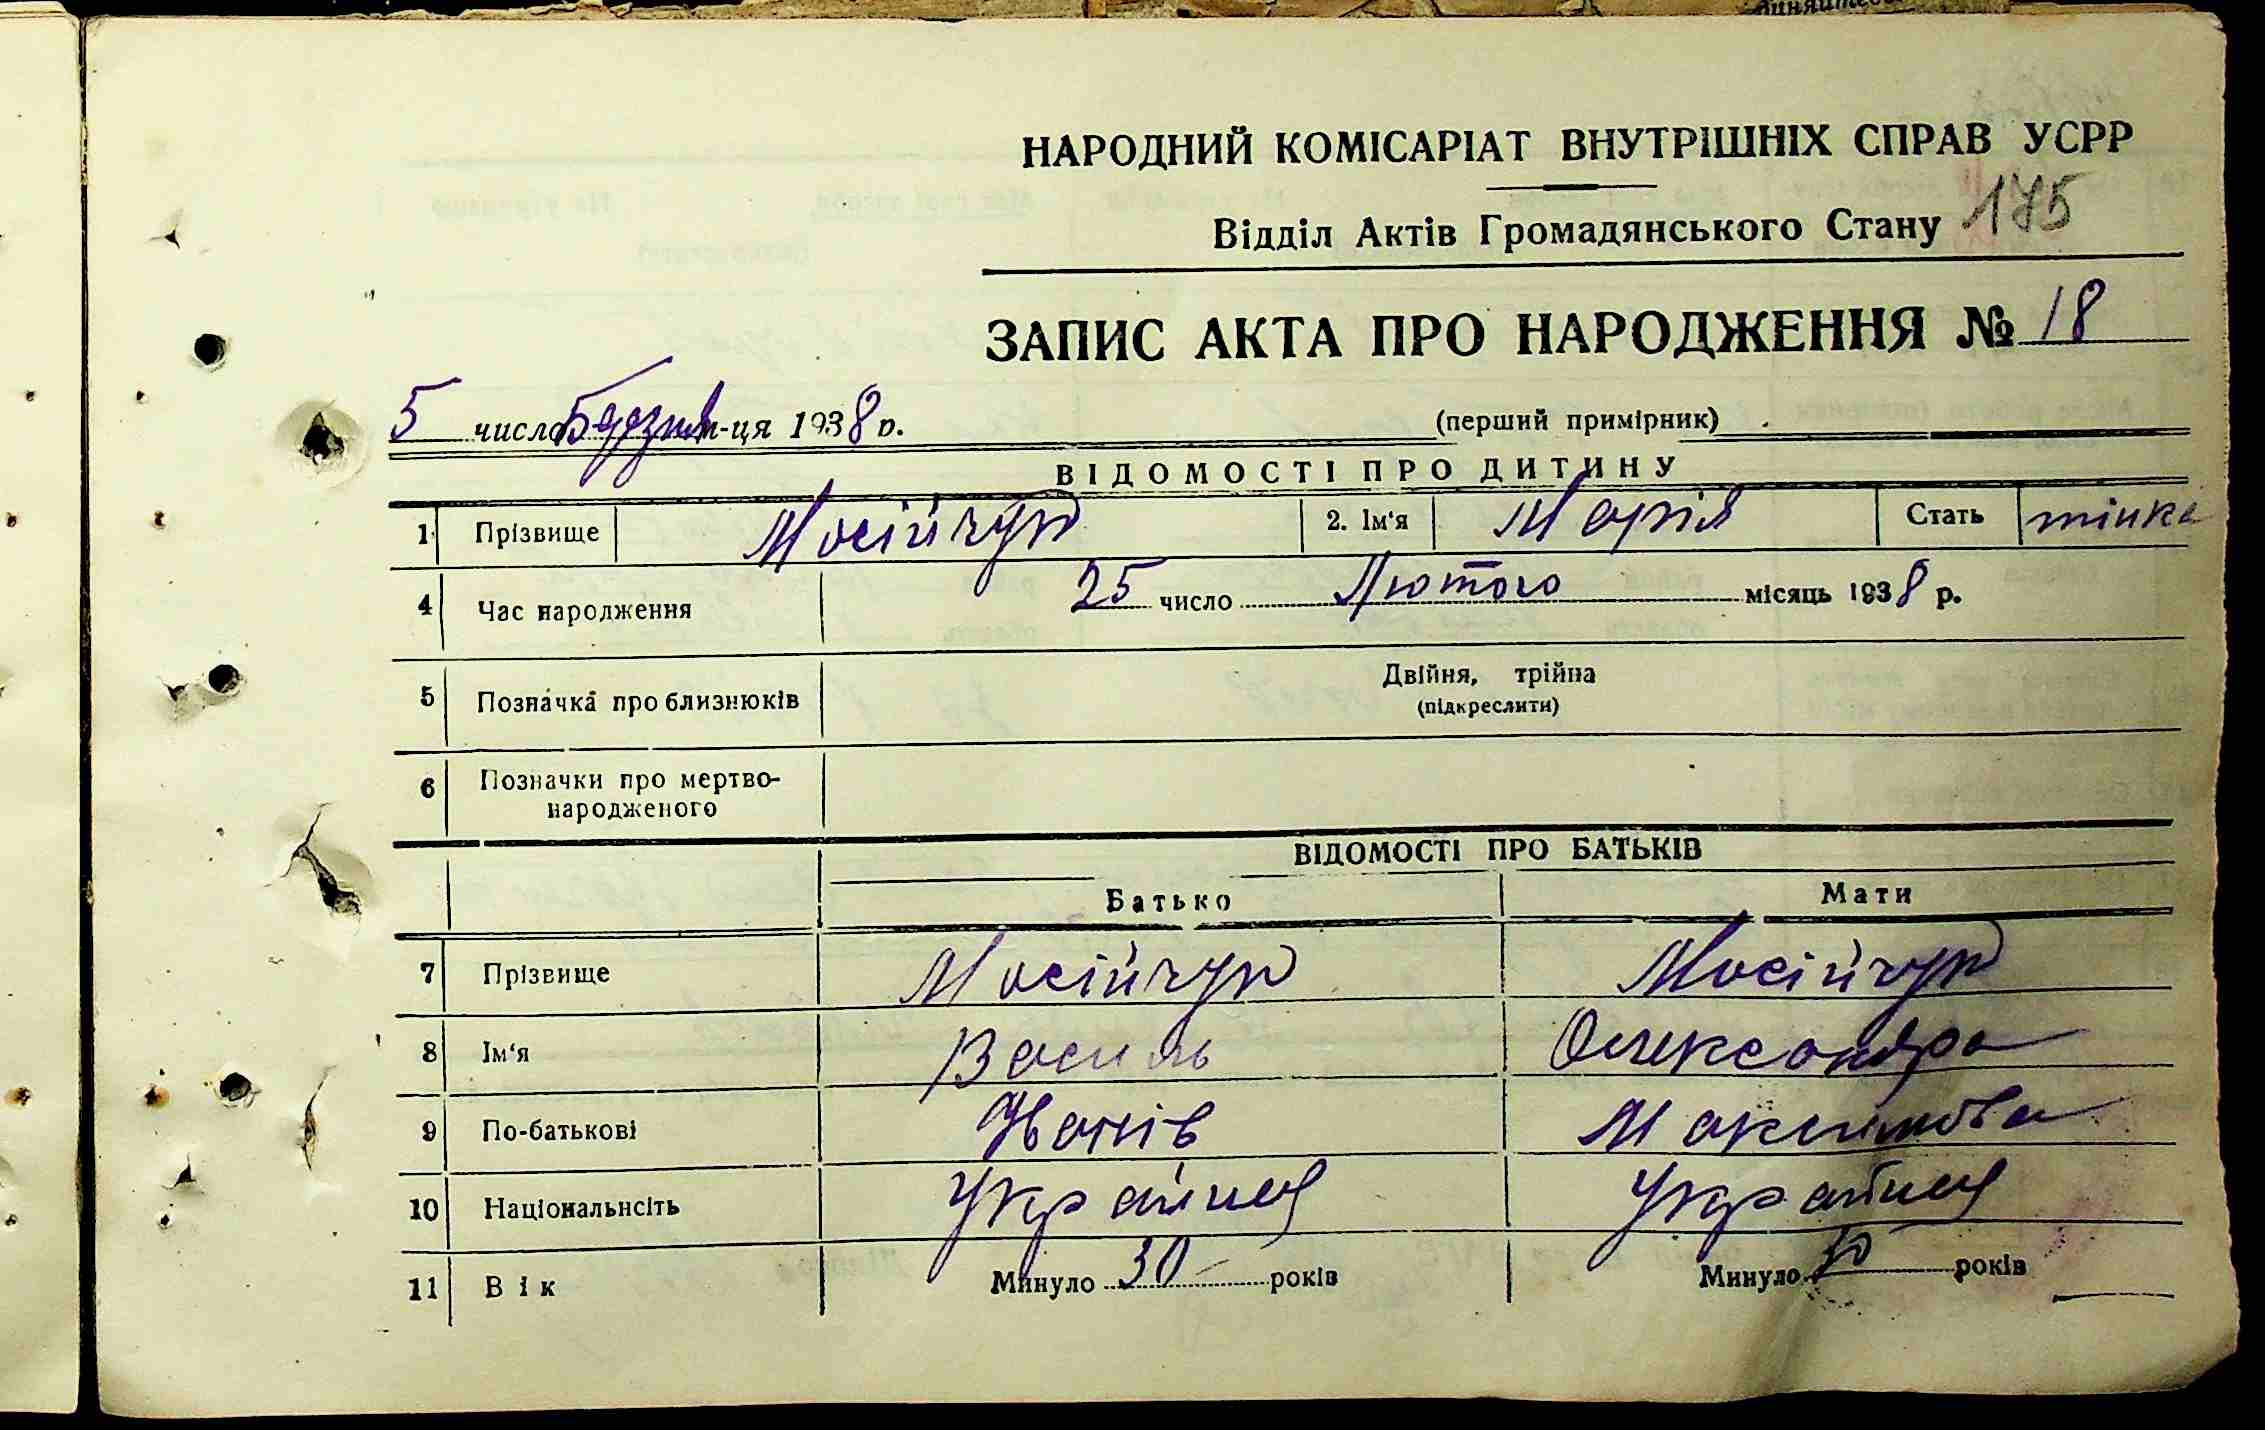 НАРОДНИЙ КОМІСАРІАТ ВНУТРІШНІХ СПРАВ УСРР
Відділ Актів Громадянського Стану 175
ЗАПИС АКТА ПРО НАРОДЖЕННЯ № 18
5 число м-ця 1938 р.
(перший примірник)
ВІДОМОСТІ ПРО ДИТИНУ
1 Прізвище Мосійчук 2. Ім'я Марія Стать жінка
4 Час народження 25 число Лютого місяць 1938 р.
5 Позначка про близнюків Двійня, трійна
(підкреслити)
6 Позначки про мертво-
народженого
ВІДОМОСТІ ПРО БАТЬКІВ
Батько Мати
7 Прізвище Мосійчук Мосійчук
8 Ім'я Василь Олександра
9 По-батькові Іванів Максимова
10 Національнсіть Українец Українец
11 Вік Минуло 30 років Минуло 30 років